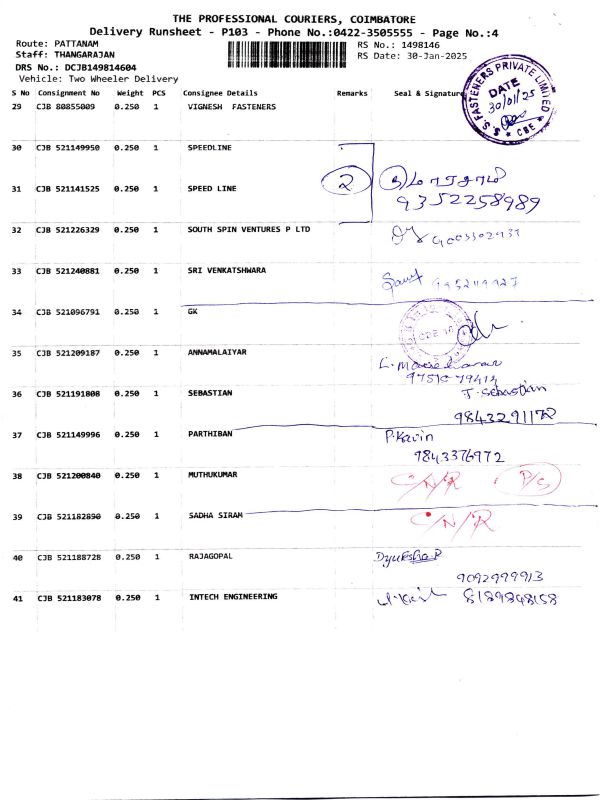 THE PROFESSIONAL COURIERS, COIMBATORE
Delivery Runsheet - P103 - Phone No.:0422-3505555 - Page No.:4
Route: PATTANAM
RS No.: 1498146
Staff: THANGARAJAN
RS Date: 30-Jan-2025
DRS No.: DCJB149814604
Vehicle: Two Wheeler Delivery
S No Consignment No Weight PCS Consignee Details Remarks Seal & Signature
S. FASTENERS PRIVATE LIMITED
DATE
30/01/25
* CBE *
29 CJB 80855009 0.250 1 VIGNESH FASTENERS
30 CJB 521149950 0.250 1 SPEEDLINE
2
31 CJB 521141525 0.250 1 SPEED LINE
9352258989
32 CJB 521226329 0.250 1 SOUTH SPIN VENTURES P LTD
33 CJB 521240881 0.250 1 SRI VENKATSHWARA
34 CJB 521096791 0.250 1 GK
35 CJB 521209187 0.250 1 ANNAMALAIYAR
36 CJB 521191808 0.250 1 SEBASTIAN
J. Sebastian
37 CJB 521149996 0.250 1 PARTHIBAN
P.Kavin
9843376972
38 CJB 521200840 0.250 1 MUTHUKUMAR
C/N/R P/S
39 CJB 521182890 0.250 1 SADHA SIRAM
C/N/R
40 CJB 521188728 0.250 1 RAJAGOPAL
9092999913
41 CJB 521183078 0.250 1 INTECH ENGINEERING
8189848158